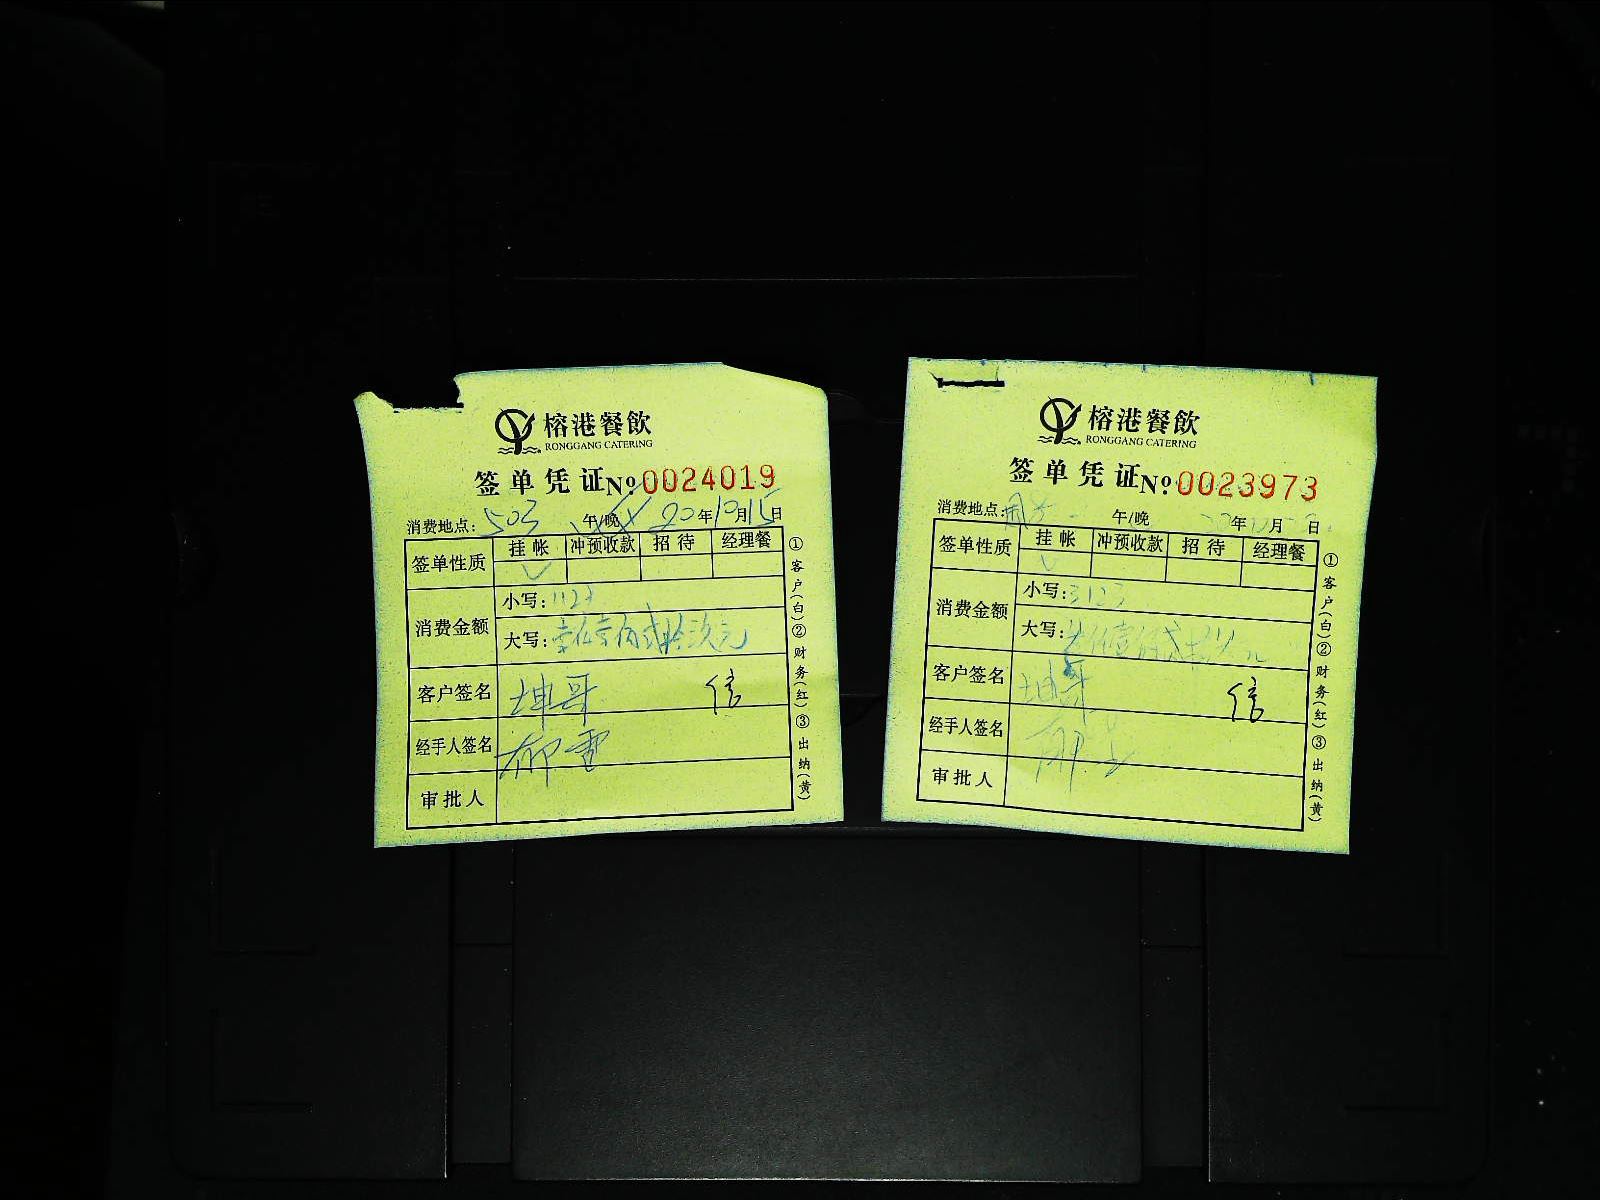 榕港餐飲
RONGGANG CATERING
签单凭证 № 0024019
消费地点: 503 午/晚 20年10月15日
签单性质 挂帐 冲预收款 招待 经理餐
✓
消费金额 小写: 1123
大写: 壹仟壹佰贰拾叁元
客户签名 坤哥 信
经手人签名
审批人
①客户(白)②财务(红)③出纳(黄)
榕港餐飲
RONGGANG CATERING
签单凭证 № 0023973
消费地点: 午/晚 年 月 日
签单性质 挂帐 冲预收款 招待 经理餐
✓
消费金额 小写: 3123
大写:
客户签名 坤哥 信
经手人签名
审批人
①客户(白)②财务(红)③出纳(黄)